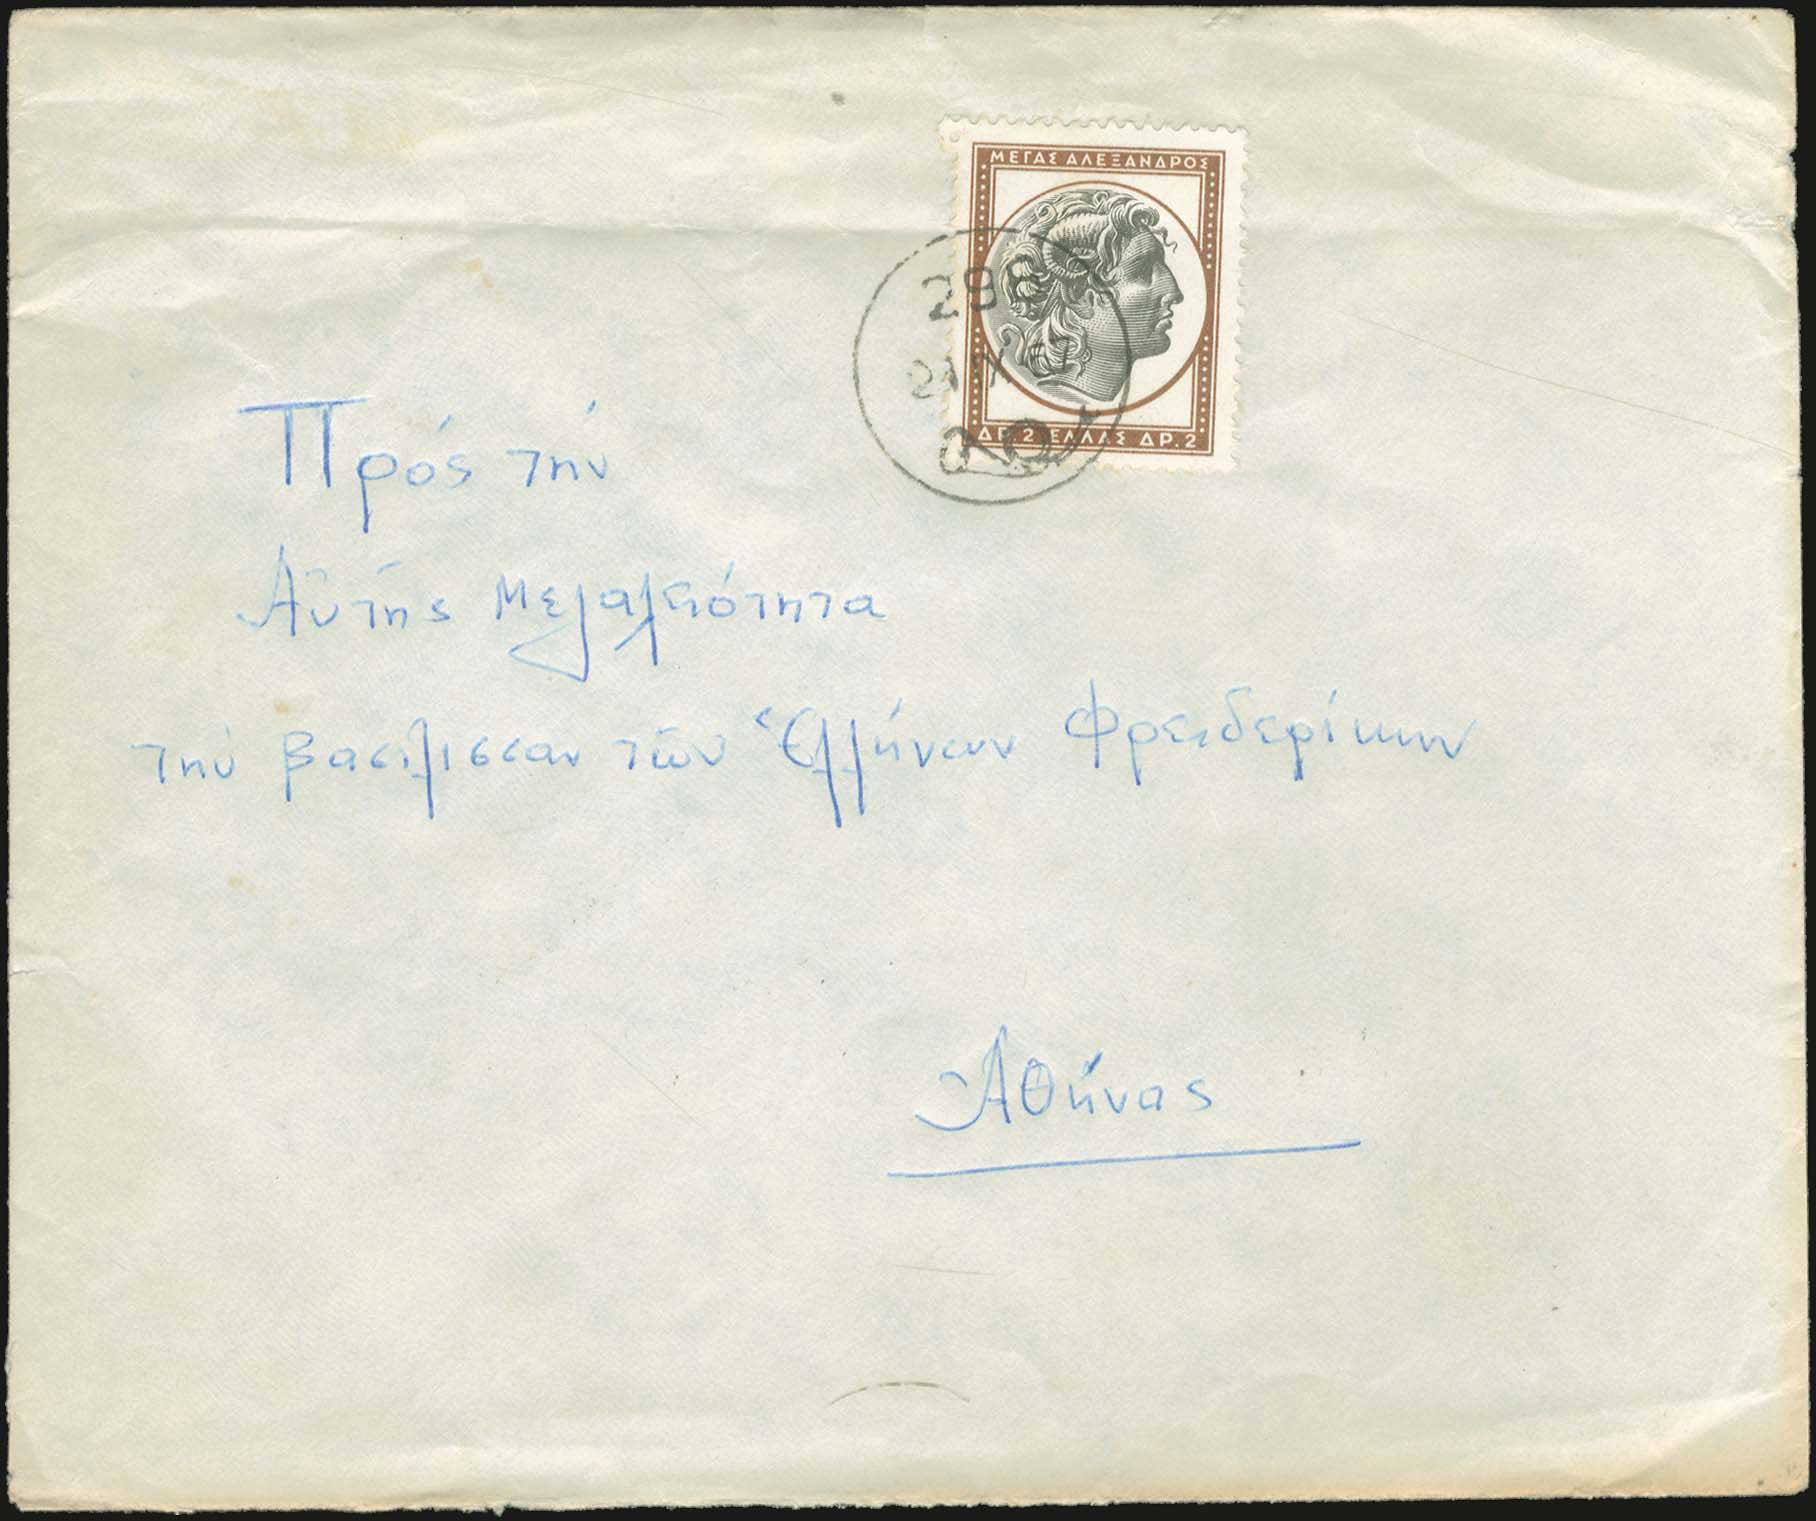 ΜΕΓΑΣ ΑΛΕΞΑΝΔΡΟΣ
ΔΡ. 2 ΕΛΛΑΣ ΔΡ. 2
Πρός τήν
Αὐτῆς Μεγαλειότητα
τήν βασιλισσαν τῶν Ἑλλήνων Φρειδερίκην
Ἀθήνας